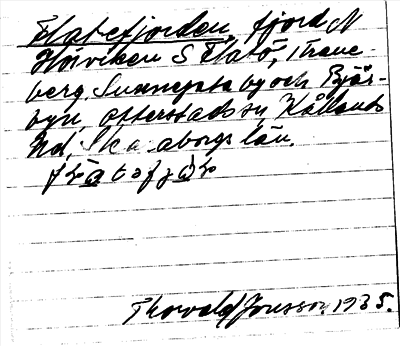 Flatefjorden, fjord N
Höiviken S Flatö, Trane-
berg, Sunnersta by och Bjär-
byn, Otterstads sn, Kållands
hd, Skaraborgs län.
Thorvald Jonsson. 1935.